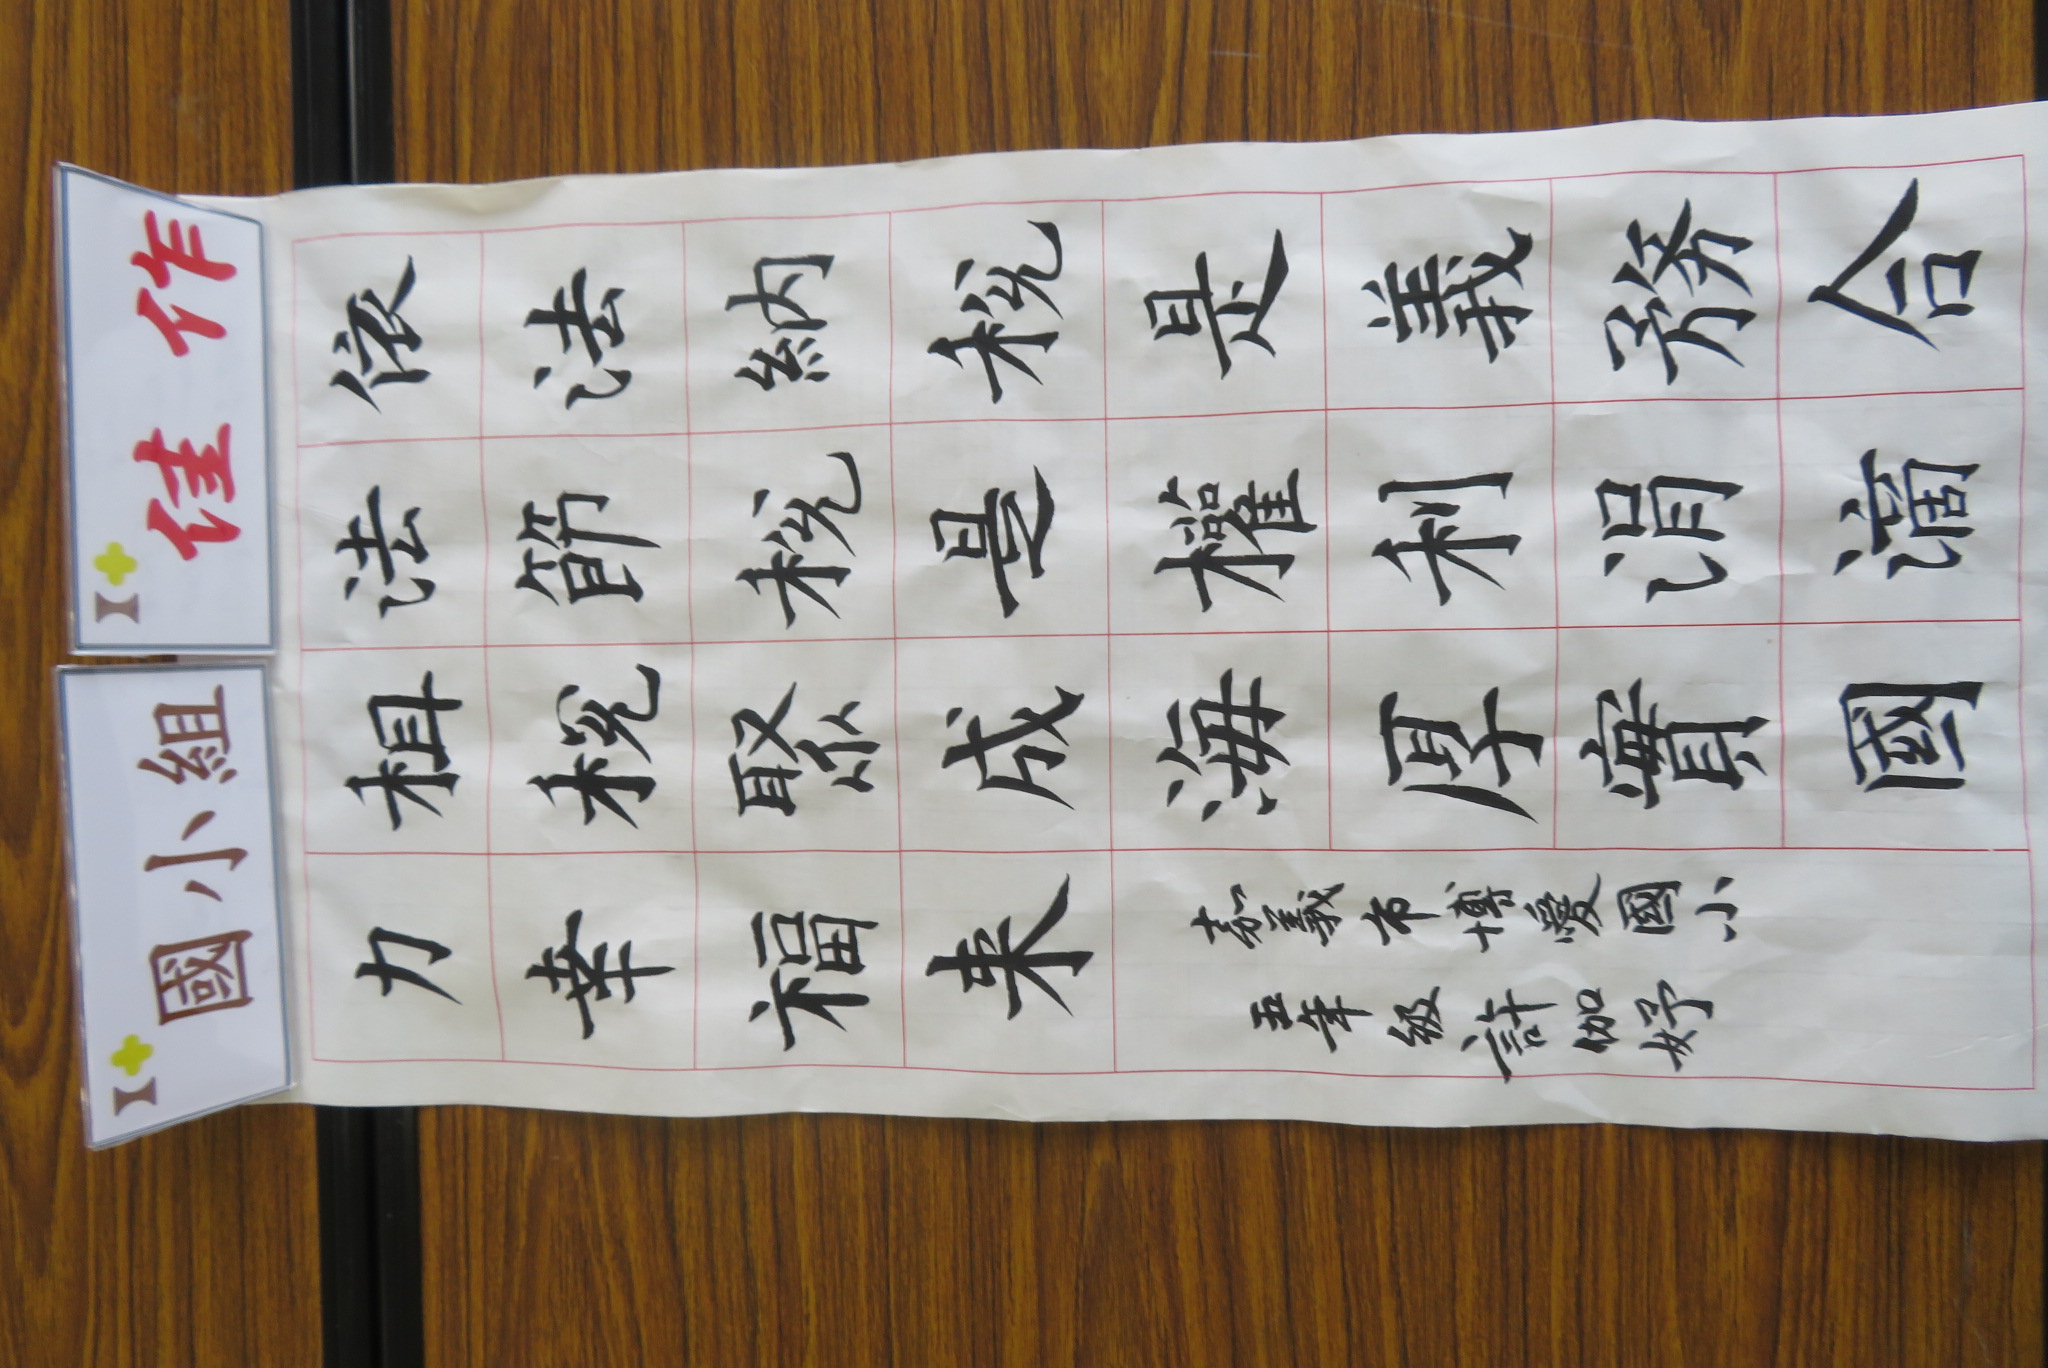 國小組
佳作
依法納稅是義務合
法節稅是權利涓滴
租稅聚成海厚實國
力幸福来
嘉義市博愛國小
五年級許伽妤